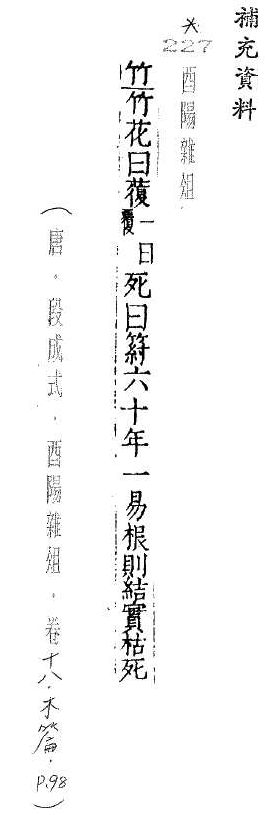 補充資料
* 227 酉陽雜俎
竹竹花曰蕧一曰覆死曰䈙六十年一易根則結實枯死
(唐。段成式。酉陽雜俎。卷十八.木篇.P.98)